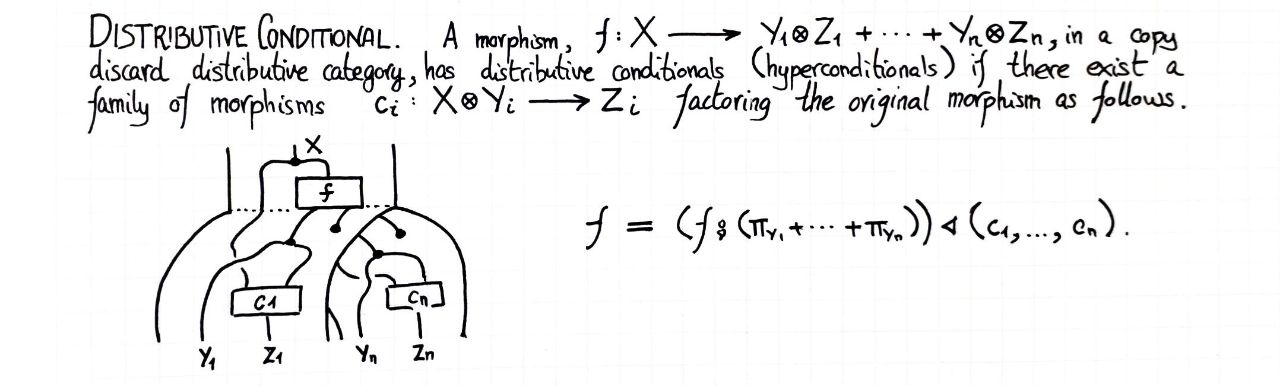 DISTRIBUTIVE CONDITIONAL. A morphism, f : X ⟶ Y₁⊗Z₁ + ⋯ + Yₙ⊗Zₙ, in a copy
discard distributive category, has distributive conditionals (hyperconditionals) if there exist a
family of morphisms cᵢ : X⊗Yᵢ ⟶ Zᵢ factoring the original morphism as follows.
X
f
f = (f ⨾ (π_Y₁ + ⋯ + π_Yₙ)) ◁ (c₁, ..., cₙ).
c1 cn
Y₁ Z₁ Yₙ Zₙ